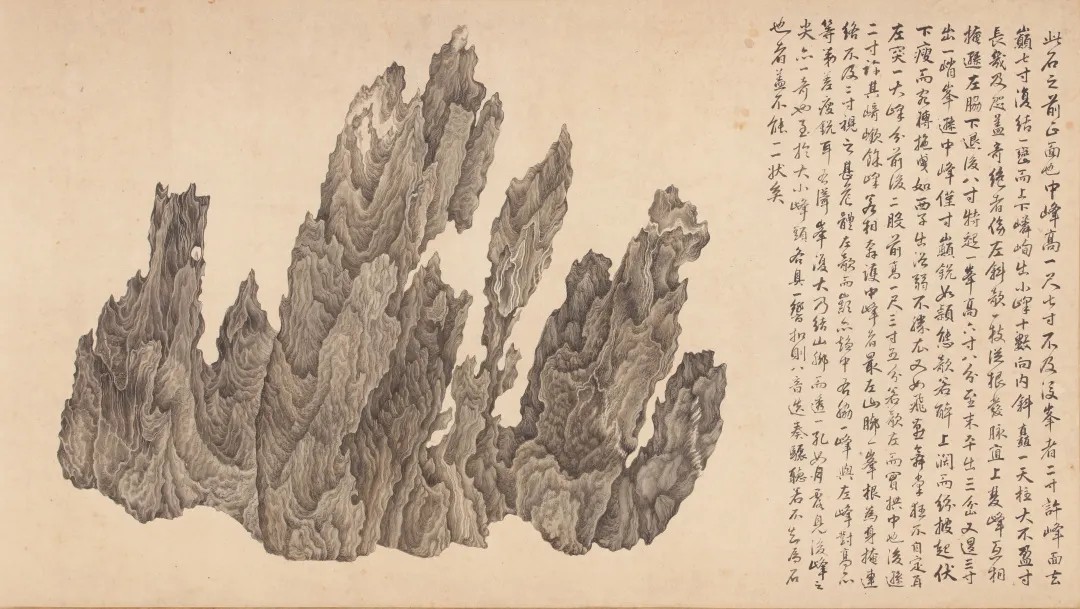 此石之前正面也中峰高一尺七寸不及後峯者二寸許峰面去
巔七寸復結一巒而上下嶙峋出小峰十數向內斜矗一天柱大不盈寸
長幾及咫蓋奇絕者傍左斜欹一枝從根發脉直上與峰互相
掩遜左脇下退後八寸特起一峯高六寸八分至末平出三岔又退三寸
出一峭峯遜中峰僅寸巔銳如穎態欹若解上闊而紛披起伏
下瘦而宛轉拖曳如西子出浴弱不勝衣又如飛燕舞掌狂不自定耳
左突一大峰分前後二股前高一尺三寸五分若欹左而實拱中也後遜
二寸許其崎嶔餘峰若相奔護中峰者最左山腳一峯根為身掩連
絡不及二寸視之甚危體左欹而巔亦趨中右腋一峰與左峰對高亦
等第差瘦銳耳右 峯復大乃結山腳而透一孔如月露見後峰之
尖亦一奇也至於大小峰頭各具一聲扣則八音迭奏驟聽者不知為石
也者蓋不能一一狀矣